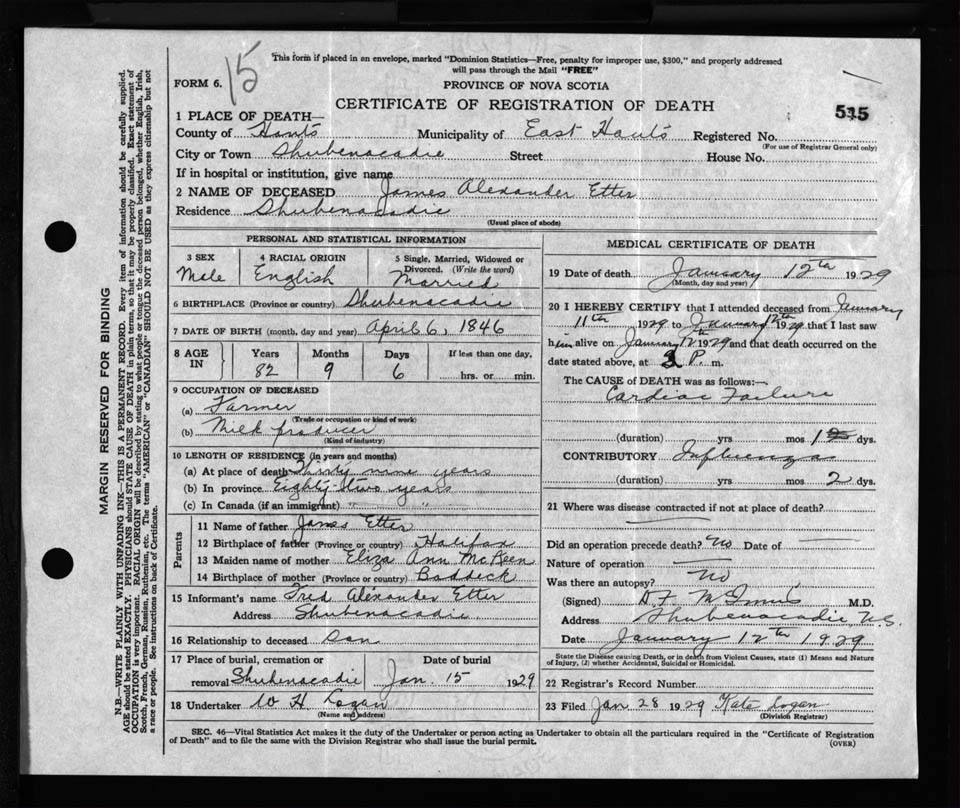 15
This form if placed in an envelope, marked "Dominion Statistics—Free, penalty for improper use, $300," and properly addressed
will pass through the Mail "FREE"
FORM 6.
PROVINCE OF NOVA SCOTIA
CERTIFICATE OF REGISTRATION OF DEATH
515
1 PLACE OF DEATH—
County of Hants Municipality of East Hants Registered No.
(For use of Registrar General only)
City or Town Shubenacadie Street House No.
If in hospital or institution, give name
2 NAME OF DECEASED James Alexander Etter
Residence Shubenacadie
(Usual place of abode)
PERSONAL AND STATISTICAL INFORMATION
3 SEX 4 RACIAL ORIGIN 5 Single, Married, Widowed or
Divorced. (Write the word)
Male English Married
6 BIRTHPLACE (Province or country) Shubenacadie
7 DATE OF BIRTH (month, day and year) April 6, 1846
8 AGE IN Years Months Days If less than one day,
82 9 6 hrs. or min.
9 OCCUPATION OF DECEASED
(a) Farmer
(Trade or occupation or kind of work)
(b) Milk producer
(Kind of industry)
10 LENGTH OF RESIDENCE (in years and months)
(a) At place of death Thirty nine years
(b) In province Eighty-two years
(c) In Canada (if an immigrant) " "
Parents
11 Name of father James Etter
12 Birthplace of father (Province or country) Halifax
13 Maiden name of mother Eliza Ann McKeen
14 Birthplace of mother (Province or country) Baddeck
15 Informant's name Fred Alexander Etter
Address Shubenacadie
16 Relationship to deceased Son
17 Place of burial, cremation or Date of burial
removal Shubenacadie Jan. 15 1929
18 Undertaker W H Logan
(Name and address)
MEDICAL CERTIFICATE OF DEATH
19 Date of death January 12th 1929
(Month, day and year)
20 I HEREBY CERTIFY that I attended deceased from January
11th 1929 to January 12th 1929 that I last saw
him alive on January 12th 1929 and that death occurred on the
date stated above, at P. m.
The CAUSE of DEATH was as follows:—
Cardiac Failure
(duration) yrs mos 1 dys.
CONTRIBUTORY Influenza
(duration) yrs mos 2 dys.
21 Where was disease contracted if not at place of death?
Did an operation precede death? No Date of
Nature of operation
Was there an autopsy? No
(Signed) D.F. McInnis M.D.
Address Shubenacadie N.S.
Date January 12th 1929
State the Disease causing Death, or in death from Violent Causes, state (1) Means and Nature
of Injury, (2) whether Accidental, Suicidal or Homicidal.
22 Registrar's Record Number
23 Filed Jan 28 1929 Kate Logan
(Division Registrar)
SEC. 46—Vital Statistics Act makes it the duty of the Undertaker or person acting as Undertaker to obtain all the particulars required in the "Certificate of Registration
of Death" and to file the same with the Division Registrar who shall issue the burial permit. (OVER)
MARGIN RESERVED FOR BINDING
N.B.—WRITE PLAINLY WITH UNFADING INK—THIS IS A PERMANENT RECORD. Every item of information should be carefully supplied.
AGE should be stated EXACTLY. PHYSICIANS should STATE CAUSE OF DEATH in plain terms, so that it may be properly classified. Exact statement of
OCCUPATION is very important. RACIAL ORIGIN will be described by stating to what people or tongue the deceased person belonged, whether English, Irish,
Scotch, French, German, Russian, Ruthenian, etc. The terms "AMERICAN" or "CANADIAN" SHOULD NOT BE USED as they express citizenship but not
a race or people. See instructions on back of Certificate.